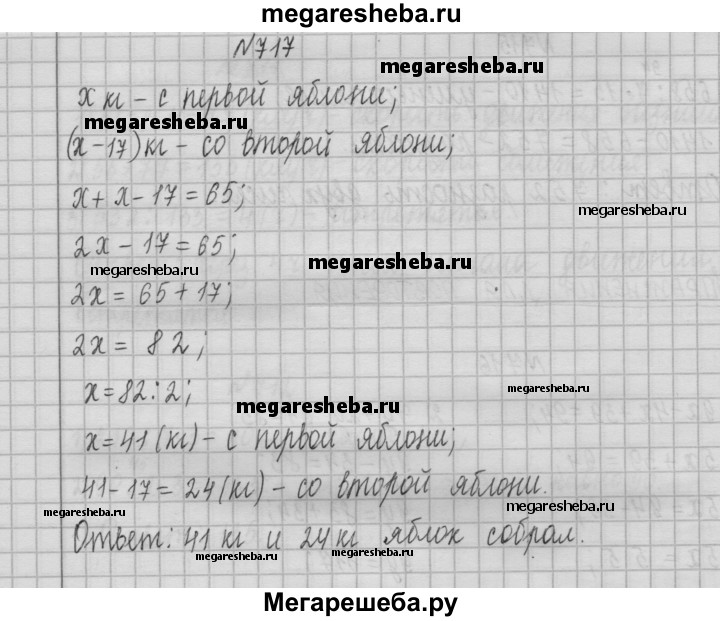 megaresheba.ru
N717
megaresheba.ru
x кг – с первой яблони;
megaresheba.ru
(x–17)кг – со второй яблони;
x + x – 17 = 65;
megaresheba.ru
2x – 17 = 65;
megaresheba.ru
megaresheba.ru
2x = 65 + 17;
2x = 82;
x = 82 : 2;
megaresheba.ru
megaresheba.ru
x = 41 (кг) – с первой яблони;
megaresheba.ru
41 – 17 = 24 (кг) – со второй яблони.
megaresheba.ru
megaresheba.ru
Ответ: 41 кг и 24 кг яблок собрал.
megaresheba.ru
megaresheba.ru
Мегарешеба.ру